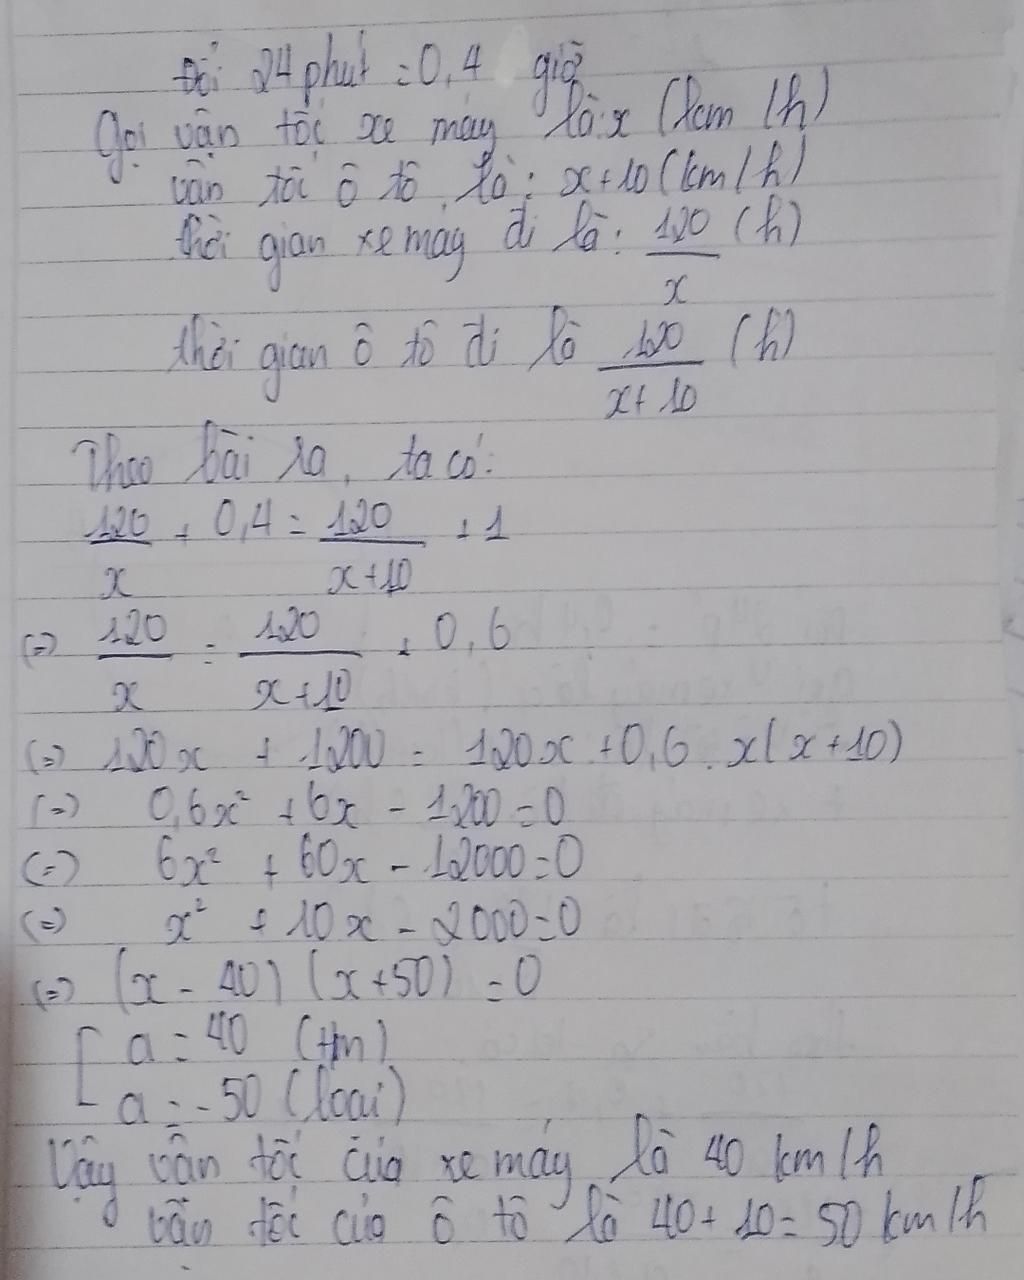 Đổi 24 phút = 0,4 giờ
Gọi vận tốc xe máy là: x (km/h)
vận tốc ô tô là: x+10 (km/h)
thời gian xe máy đi là: 120/x (h)
thời gian ô tô đi là 120/(x+10) (h)
Theo bài ra, ta có:
120/x + 0,4 = 120/(x+10) + 1
(=) 120/x = 120/(x+10) + 0,6
(=) 120x + 1200 = 120x + 0,6 . x(x+10)
(=) 0,6x² + 6x - 1200 = 0
(=) 6x² + 60x - 12000 = 0
(=) x² + 10x - 2000 = 0
(=) (x - 40) (x+50) = 0
[ a = 40 (tm)
a = -50 (loại)
Vậy vận tốc của xe máy là 40 km/h
vận tốc của ô tô là 40 + 10 = 50 km/h